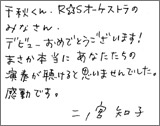 千秋くん、R☆Sオーケストラの
みなさん、
デビューおめでとうございます!
まさか本当にあなたたちの
演奏が聴けると思いませんでした。
感動です。
二ノ宮 知子